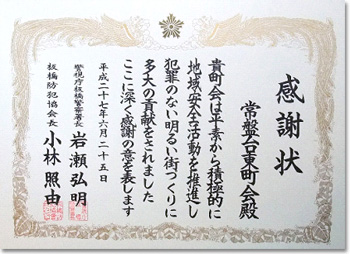 感謝状
常盤台東町会殿
貴町会は平素から積極的に
地域安全活動を推進し
犯罪のない明るい街づくりに
多大の貢献をされました
ここに深く感謝の意を表します
平成二十七年六月二十五日
警視庁板橋警察署長 岩瀬弘明
板橋防犯協会長 小林照由